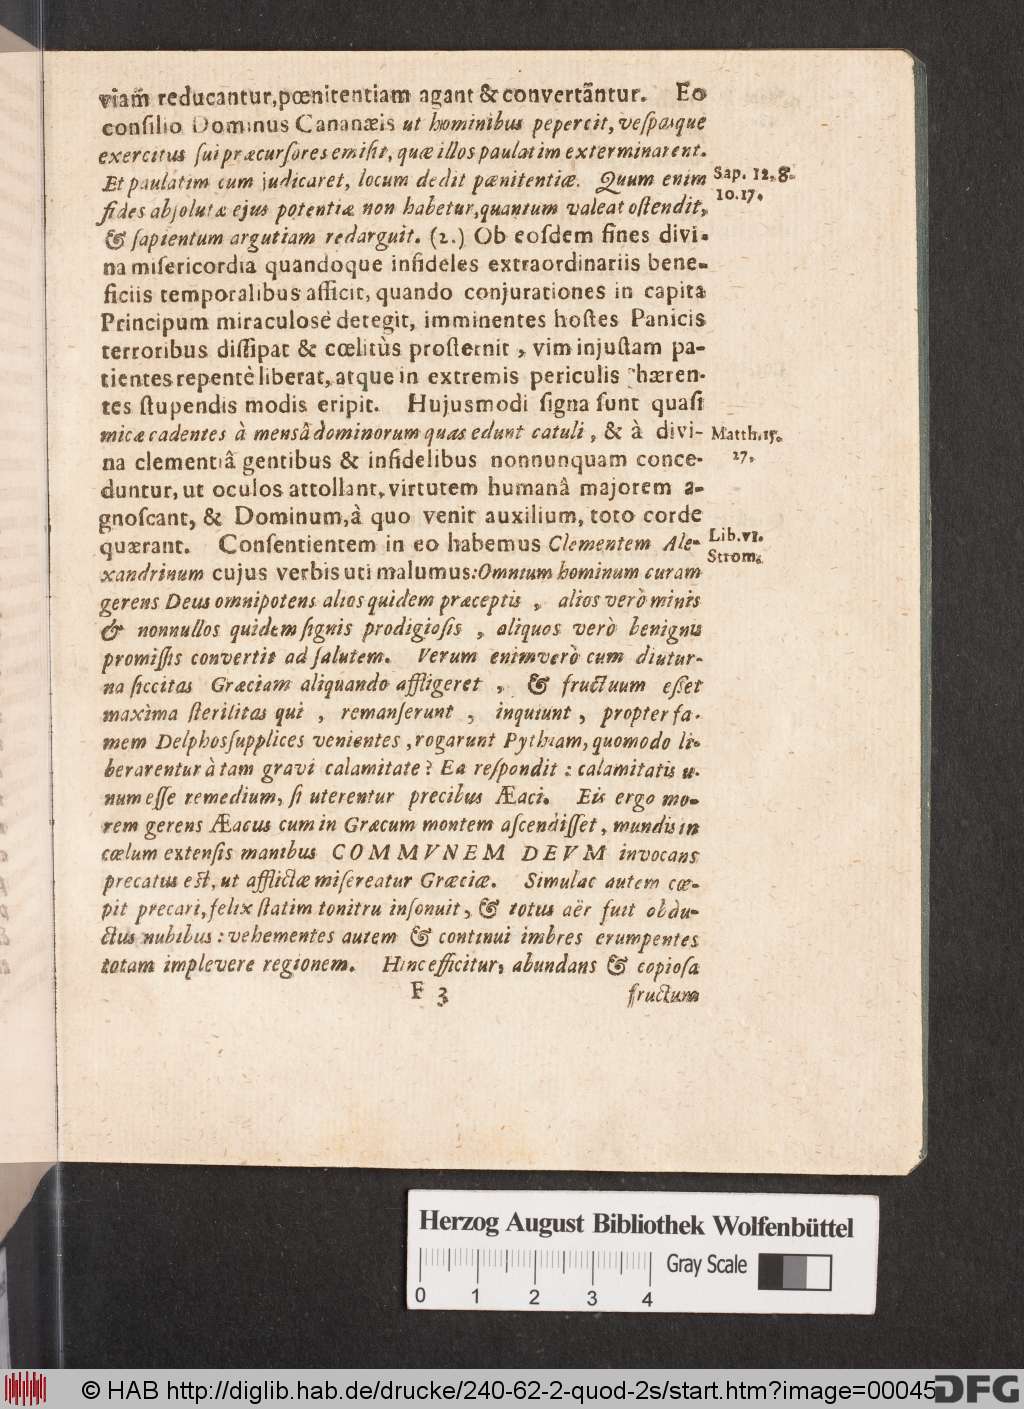 viam reducantur, pœnitentiam agant & convertantur. Eo
consilio Dominus Cananæis ut hominibus pepercit, vespasque
exercitus sui præcursores emisit, quæ illos paulatim exterminarent.
Et paulatim cum judicaret, locum dedit pœnitentiæ. Quum enim
fides absolutæ ejus potentiæ non habetur, quantum valeat ostendit,
& sapientum argutiam redarguit. (2.) Ob eosdem fines divi-
na misericordia quandoque infideles extraordinariis bene-
ficiis temporalibus afficit, quando conjurationes in capita
Principum miraculosè detegit, imminentes hostes Panicis
terroribus dissipat & cœlitùs prosternit, vim injustam pa-
tientes repentè liberat, atque in extremis periculis hæren-
tes stupendis modis eripit. Hujusmodi signa sunt quasi
micæ cadentes à mensâ dominorum quas edunt catuli, & à divi-
na clementiâ gentibus & infidelibus nonnunquam conce-
duntur, ut oculos attollant, virtutem humanâ majorem a-
gnoscant, & Dominum, à quo venit auxilium, toto corde
quærant. Consentientem in eo habemus Clementem Ale-
xandrinum cujus verbis uti malumus: Omnium hominum curam
gerens Deus omnipotens alios quidem præceptis, alios verò minis
& nonnullos quidem signis prodigiosis, aliquos verò benignis
promissis convertit ad salutem. Verum enimverò cum diutur-
na siccitas Græciam aliquando affligeret, & fructuum esset
maxima sterilitas qui, remanserunt, inquiunt, propter fa-
mem Delphos supplices venientes, rogarunt Pythiam, quomodo li-
berarentur à tam gravi calamitate? Ea respondit: calamitatis u-
num esse remedium, si uterentur precibus Æaci. Eis ergo mo-
rem gerens Æacus cum in Græcum montem ascendisset, mundis in
cœlum extensis manibus COMMVNEM DEVM invocans
precatus est, ut afflictæ misereatur Græciæ. Simulac autem cœ-
pit precari, felix statim tonitru insonuit, & totus aër fuit obdu-
ctus nubibus: vehementes autem & continui imbres erumpentes
totam implevere regionem. Hinc efficitur, abundans & copiosa
F 3 fructum
Sap. 12. 8.
10. 17.
Matth. 15.
27.
Lib. VI.
Strom.
Herzog August Bibliothek Wolfenbüttel
Gray Scale
0 1 2 3 4
© HAB http://diglib.hab.de/drucke/240-62-2-quod-2s/start.htm?image=00045
DFG